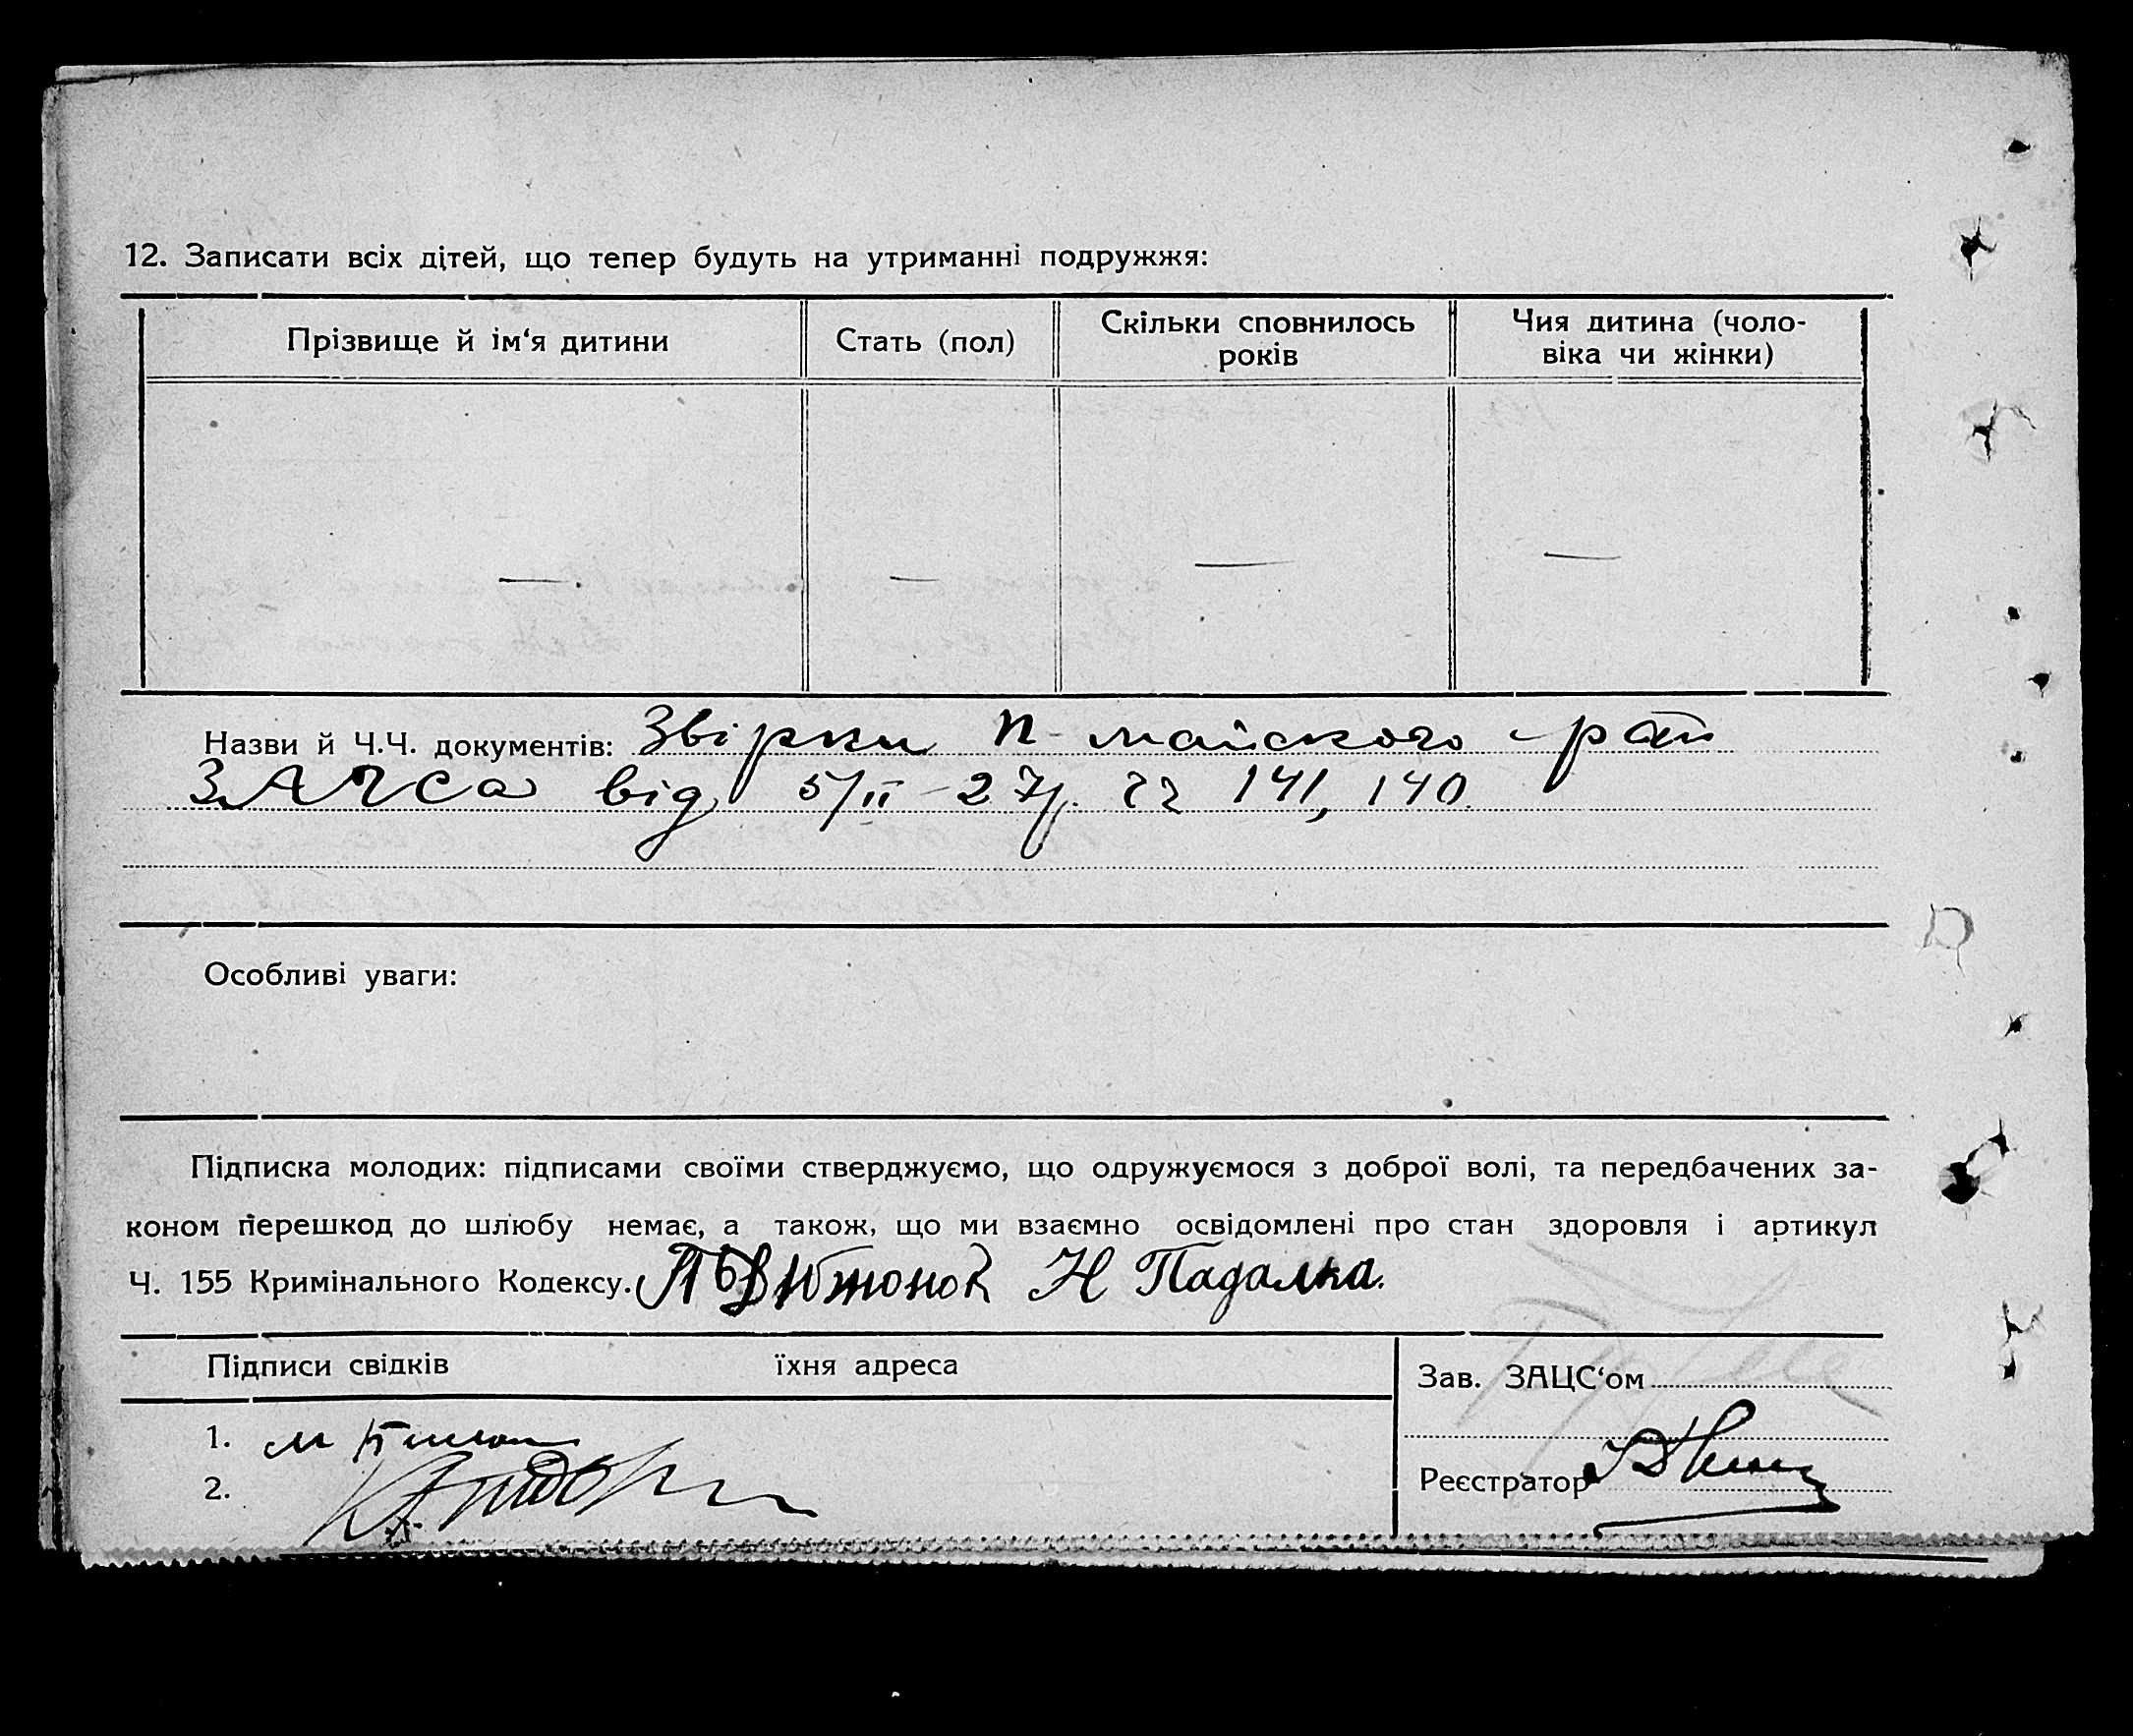 12. Записати всіх дітей, що тепер будуть на утриманні подружжя:
Прізвище й ім‘я дитини
Стать (пол)
Скільки сповнилось
років
Чия дитина (чоло-
віка чи жінки)
— — — —
Назви й Ч.Ч. документів: Звірки п-майського рай
ЗАГСа від 5/II-27р. 141, 140.
Особливі уваги:
Підписка молодих: підписами своїми стверджуємо, що одружуємося з доброї волі, та передбачених за-
коном перешкод до шлюбу немає, а також, що ми взаємно освідомлені про стан здоровля і артикул
Ч. 155 Кримінального Кодексу. Н Падалка.
Підписи свідків їхня адреса
Зав. ЗАЦС‘ом
1. М
2.
Реєстратор